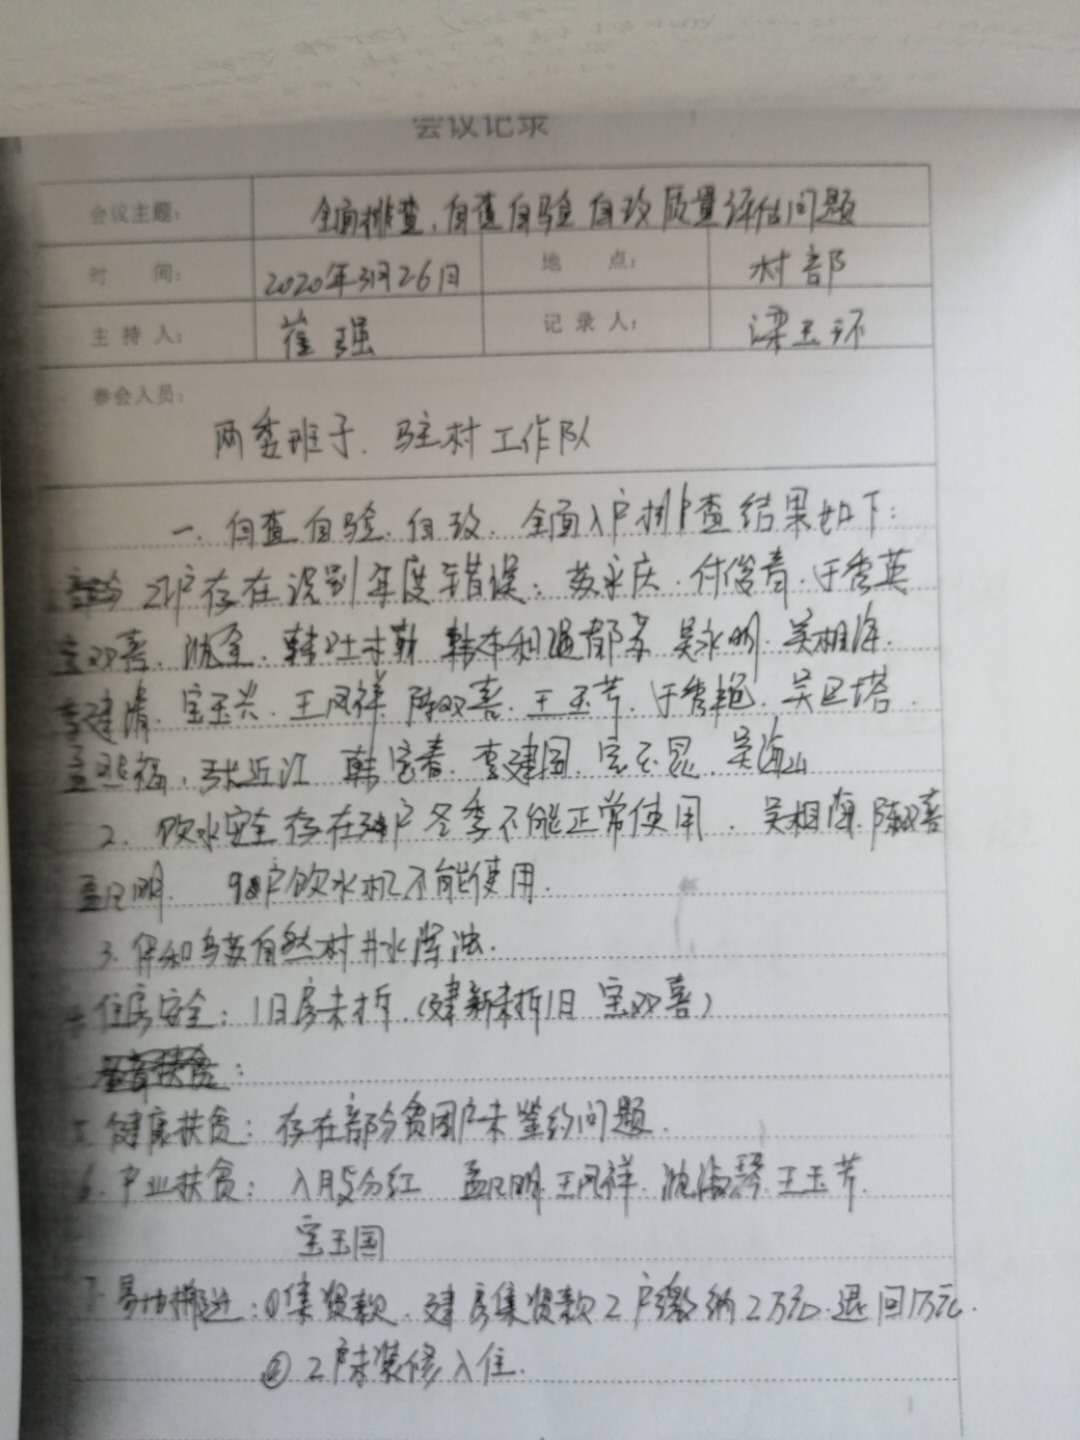 会议记录
会议主题: 全面排查、自查自验自改质量评估问题
时 间: 2020年3月26日 地 点: 村部
主 持 人: 崔强 记 录 人: 梁玉环
参会人员:
两委班子、驻村工作队
一. 自查自验、自改、全面入户排查结果如下:
21户存在识别年度错误: 苏永庆、付俊青、于秀英
宝双喜、沈金、韩 韩本和 吴永明、吴相海、
李建清、宝玉兴、王凤祥 陈双喜、王玉芳、于秀艳、吴巴塔、
福、张近江 韩宝春、李建国、宝玉昆、吴海山
2、饮水安全存在3户冬季不能正常使用、吴相海、陈双喜
孟民明、 98户饮水机不能使用.
3. 自然村井水浑浊.
住房安全: 旧房未拆.(建新未拆旧 宝双喜)
健康扶贫: 存在部分贫困户未签约问题.
6. 产业扶贫: 入股分红 孟民明、王凤祥、沈淑琴、王玉芳、
宝玉国
7. 易地搬迁: ①集资款、建房集资款2户缴纳2万元、退回1万元.
② 2户未装修入住.